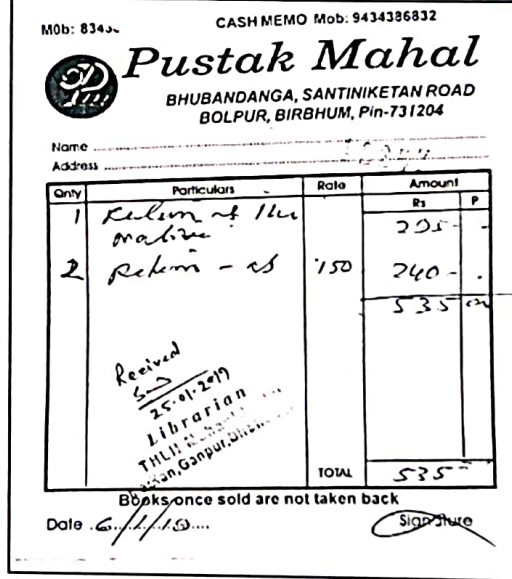 M0b: 8343
CASH MEMO Mob: 9434386832
Pustak Mahal
BHUBANDANGA, SANTINIKETAN ROAD
BOLPUR, BIRBHUM, Pin-731204
Name
Address
Qnty Particulars Rate Amount
Rs P
1 Return of the 295 -
native
2 Return - of 150 240 -
535
Received
25-01-2019
Librarian
THLH
Ganpur
TOTAL 535
Books once sold are not taken back
Date 6/1/19
Signature